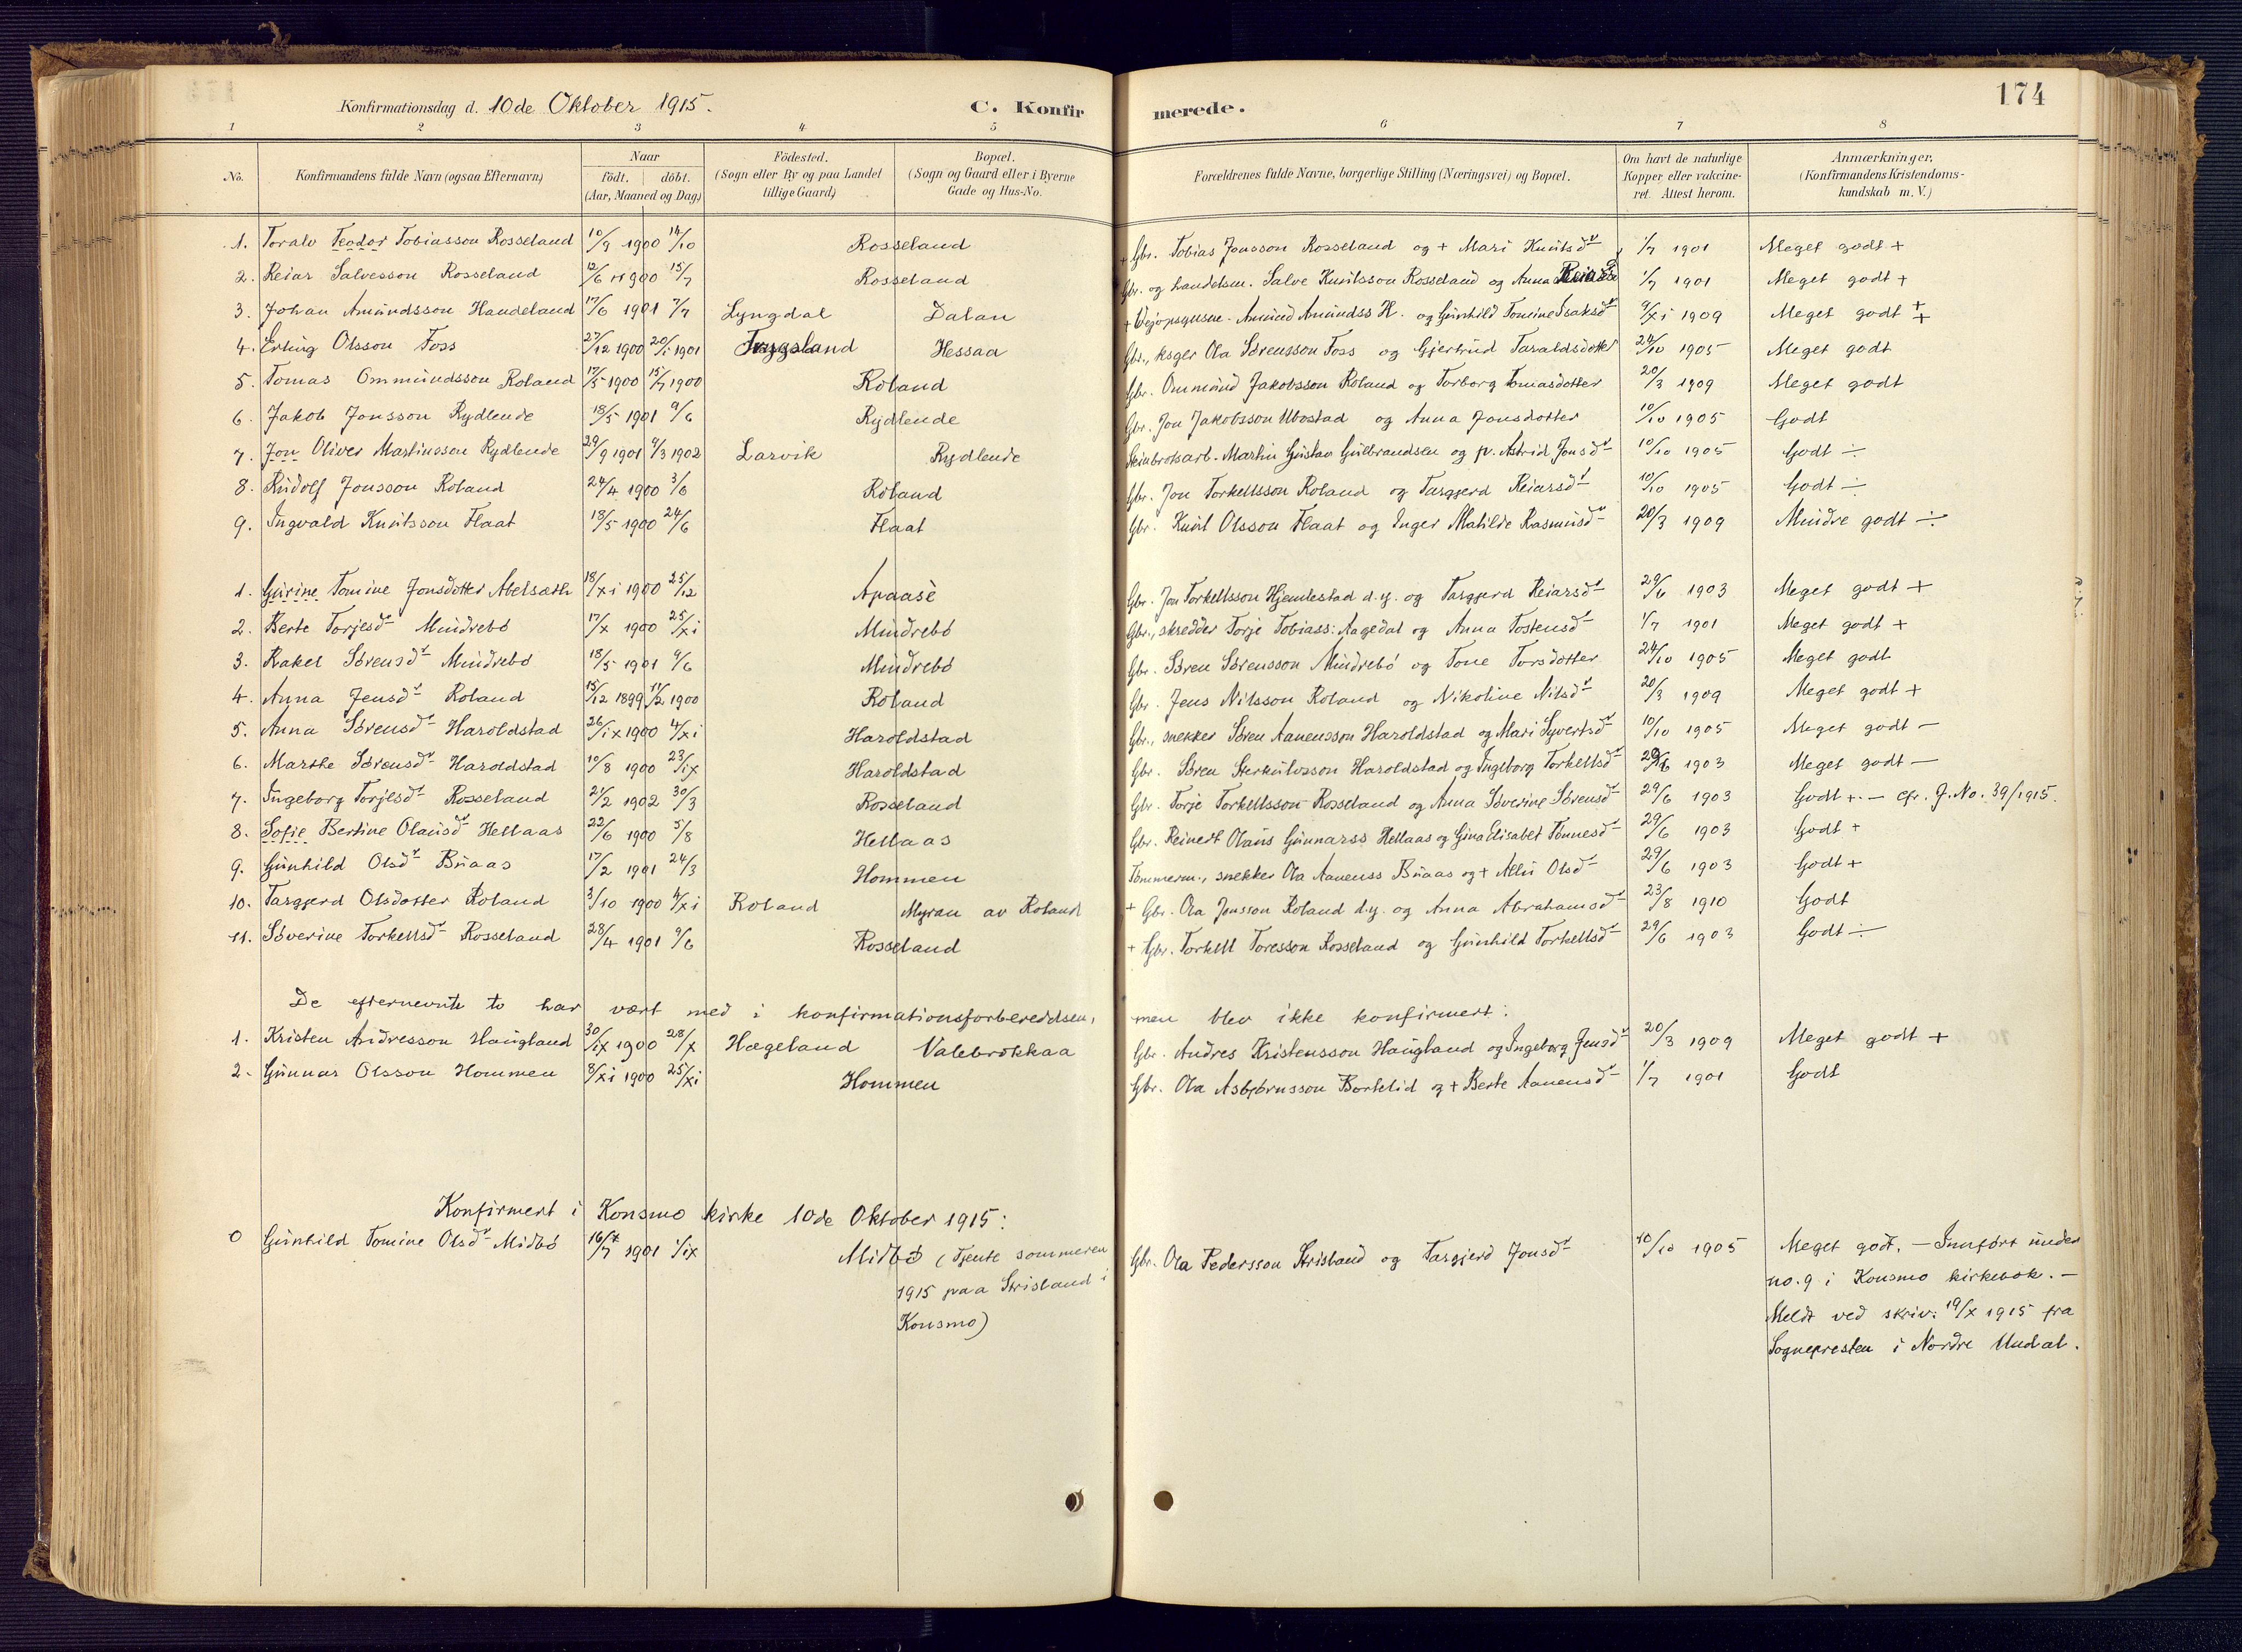 Konfirmationsdag d. 10de Oktober 1915. C. Konfirmerede. 174
1 2 3 4 5 6 7 8
No. Konfirmandens fulde Navn (ogsaa Efternavn) Naar födt. döbt. (Aar, Maaned og Dag) Födested. (Sogn eller By og paa Landet tillige Gaard) Bopæl. (Sogn og Gaard eller i Byerne Gade og Hus-No. Forældrenes fulde Navne, borgerlige Stilling (Næringsvei) og Bopæl. Om havt de naturlige Kopper, eller vakcineret. Attest herom. Anmærkninger. (Konfirmandens Kristendomskundskab m. V.)
1. Toralv Teodor Tobiasson Rosseland 10/9 1900 14/10 Rosseland + Gbr. Tobias Jonsson Rosseland og + Mari Knutsdr 1/7 1901 Meget godt +
2. Reiar Salvesson Rosseland 12/6 1900 15/7 Rosseland Gbr. og handelsm. Salve Knutsson Rosseland og Anna 1/7 1901 Meget godt +
3. Johan Amundsson Handeland 17/6 1901 7/7 Lyngdal Dalan + Amund Amundss H. og Gunhild Tomine Isaksdr 9/xi 1909 Meget godt ++
4. Erling Olsson Foss 27/12 1900 20/1 1901 Hessaa Gbr., Ola Sørensson Foss og Gjertrud Taraldsdotter 24/10 1905 Meget godt
5. Tomas Ommundsson Roland 17/5 1900 15/7 1900 Roland Gbr. Ommund Jakobsson Roland og Torborg Tomasdotter 20/3 1909 Meget godt
6. Jakob Jonsson Rydlende 18/5 1901 9/6 Rydlende Gbr. Jon Jakobsson Ubostad og Anna Jonsdotter 10/10 1905 Godt
7. Jon Oliver Martinsson Rydlende 29/9 1901 9/3 1902 Larvik Rydlende Stenbrotsarb. Martin Gustav Gulbrandsen og p. Astrid Jonsdr 10/10 1905 Godt ÷
8. Rudolf Jonsson Roland 24/4 1900 3/6 Roland Gbr. Jon Torkellsson Roland og Targjerd Reiarsdr 10/10 1905 Godt ÷
9. Ingvald Knutsson Flaat 18/5 1900 24/6 Flaat Gbr. Knut Olsson Flaat og Inger Matilde Rasmusdr 20/3 1909 Mindre godt ÷
1. Gurine Tomine Jonsdotter Abelsæth 18/xi 1900 25/12 Apaasè Gbr. Jon Torkellsson Hjemlestad d.y. og Targjerd Reiarsdr 29/6 1903 Meget godt +
2. Berte Torjesdr Mindrebö 17/x 1900 25/xi Mindrebö Gbr., skredder Torje Tobiass: Aagedal og Anna Tostensdr 1/7 1901 Meget godt +
3. Rakel Sørensdr Mindrebö 18/5 1901 9/6 Mindrebö Gbr. Søren Sørensson Mindrebö og Tone Torsdotter 24/10 1905 Meget godt
4. Anna Jensdr Roland 15/12 1899 11/2 1900 Roland Gbr. Jens Nilsson Roland og Nikoline Nilsdr 20/3 1909 Meget godt +
5. Anna Sørensdr Haroldstad 26/ix 1900 4/xi Haroldstad Gbr., snekker Søren Aanensson Haroldstad og Mari Syvertsdr 10/10 1905 Meget godt —
6. Marthe Sørensdr Haroldstad 10/8 1900 23/ix Haroldstad Gbr. Søren Sterkulvsson Haroldstad og Ingeborg Torkellsdr 29/6 1903 Meget godt —
7. Ingeborg Torjesdr Rosseland 21/2 1902 30/3 Rosseland Gbr. Torje Torkellsson Rosseland og Anna Söverine Sörensdr 29/6 1903 Godt +. — cfr. J. No. 39/1915.
8. Sofie Bertine Olausdr Hellaas 22/6 1900 5/8 Hellaas Gbr. Reinert Olaus Gunnarss Hellaas og Gina Elisabet Tønnesdr 29/6 1903 Godt +
9. Gunhild Olsdr Buaas 17/2 1901 24/3 Hommen Tömmerm., snekker Ola Aanenss Buaas og + Alli Olsdr 29/6 1903 Godt +
10. Targjerd Olsdotter Roland 3/10 1900 4/xi Roland Myran av Roland + Gbr. Ola Jonsson Roland d.y. og Anna Abrahamsdr 23/8 1910 Godt
11. Söverine Torkellsdr Rosseland 28/4 1901 9/6 Rosseland + Gbr. Torkell Toresson Rosseland og Gunhild Torkellsdr 29/6 1903 Godt ÷
De efternevnte to har vært med i konfirmationsforberedelsen, men blev ikke konfirmert:
1. Kristen Andresson Haugland 30/ix 1900 28/x Hægeland Valebrokkaa Gbr. Andres Kristensson Haugland og Ingeborg Jensdr 20/3 1909 Meget godt +
2. Gunnar Olsson Hommen 8/xi 1900 25/xi Hommen Gbr. Ola Asbjörnsson Bortelid og + Berte Aanensdr 1/7 1901 Godt
Konfirmert i Konsmo kirke 10de Oktober 1915:
0 Gunhild Tomine Olsdr Midbö 16/7 1901 1/ix Midbö (Tjente sommeren Gbr. Ola Pedersson Strisland og Targjerd Jonsdr 10/10 1905 Meget godt. — Innfört under
1915 paa Strisland i no. 9 i Konsmo kirkebok. —
Konsmo) Meldt ved skriv. 19/x 1915 fra
Sognepresten i Nordre Undal.